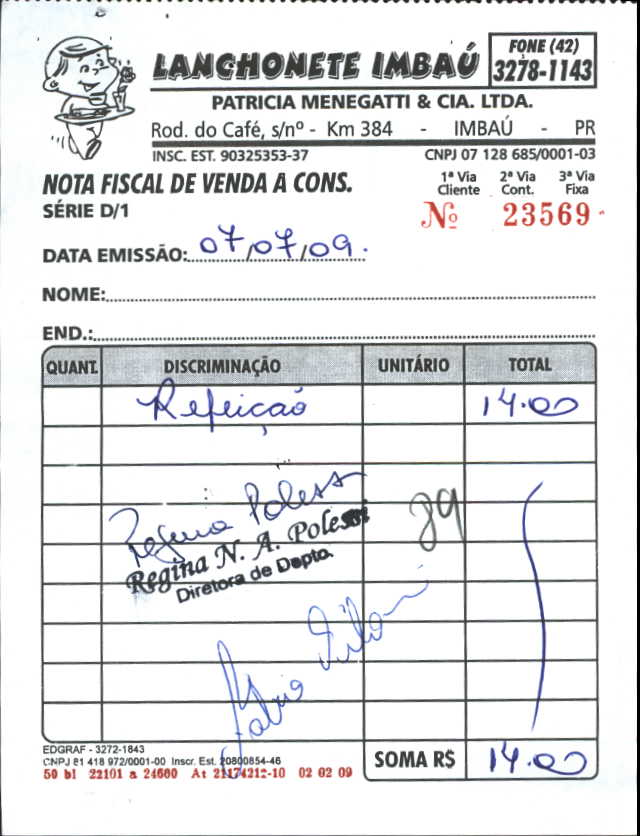 LANCHONETE IMBAÚ
FONE (42)
3278-1143
PATRICIA MENEGATTI & CIA. LTDA.
Rod. do Café, s/nº - Km 384 - IMBAÚ - PR
INSC. EST. 90325353-37 CNPJ 07 128 685/0001-03
NOTA FISCAL DE VENDA A CONS.
1ª Via Cliente 2ª Via Cont. 3ª Via Fixa
SÉRIE D/1
Nº 23569
DATA EMISSÃO: 07/07/09.
NOME:
END.:
QUANT. DISCRIMINAÇÃO UNITÁRIO TOTAL
Refeição 14.00
Regina Polessi
89
Regina N. A. Polessi
Diretora de Depto.
Fabio
EDGRAF - 3272-1843
CNPJ 81 418 972/0001-00 Inscr. Est. 20800854-46
50 bl 22101 a 24600 At 21174212-10 02 02 09
SOMA R$ 14.00